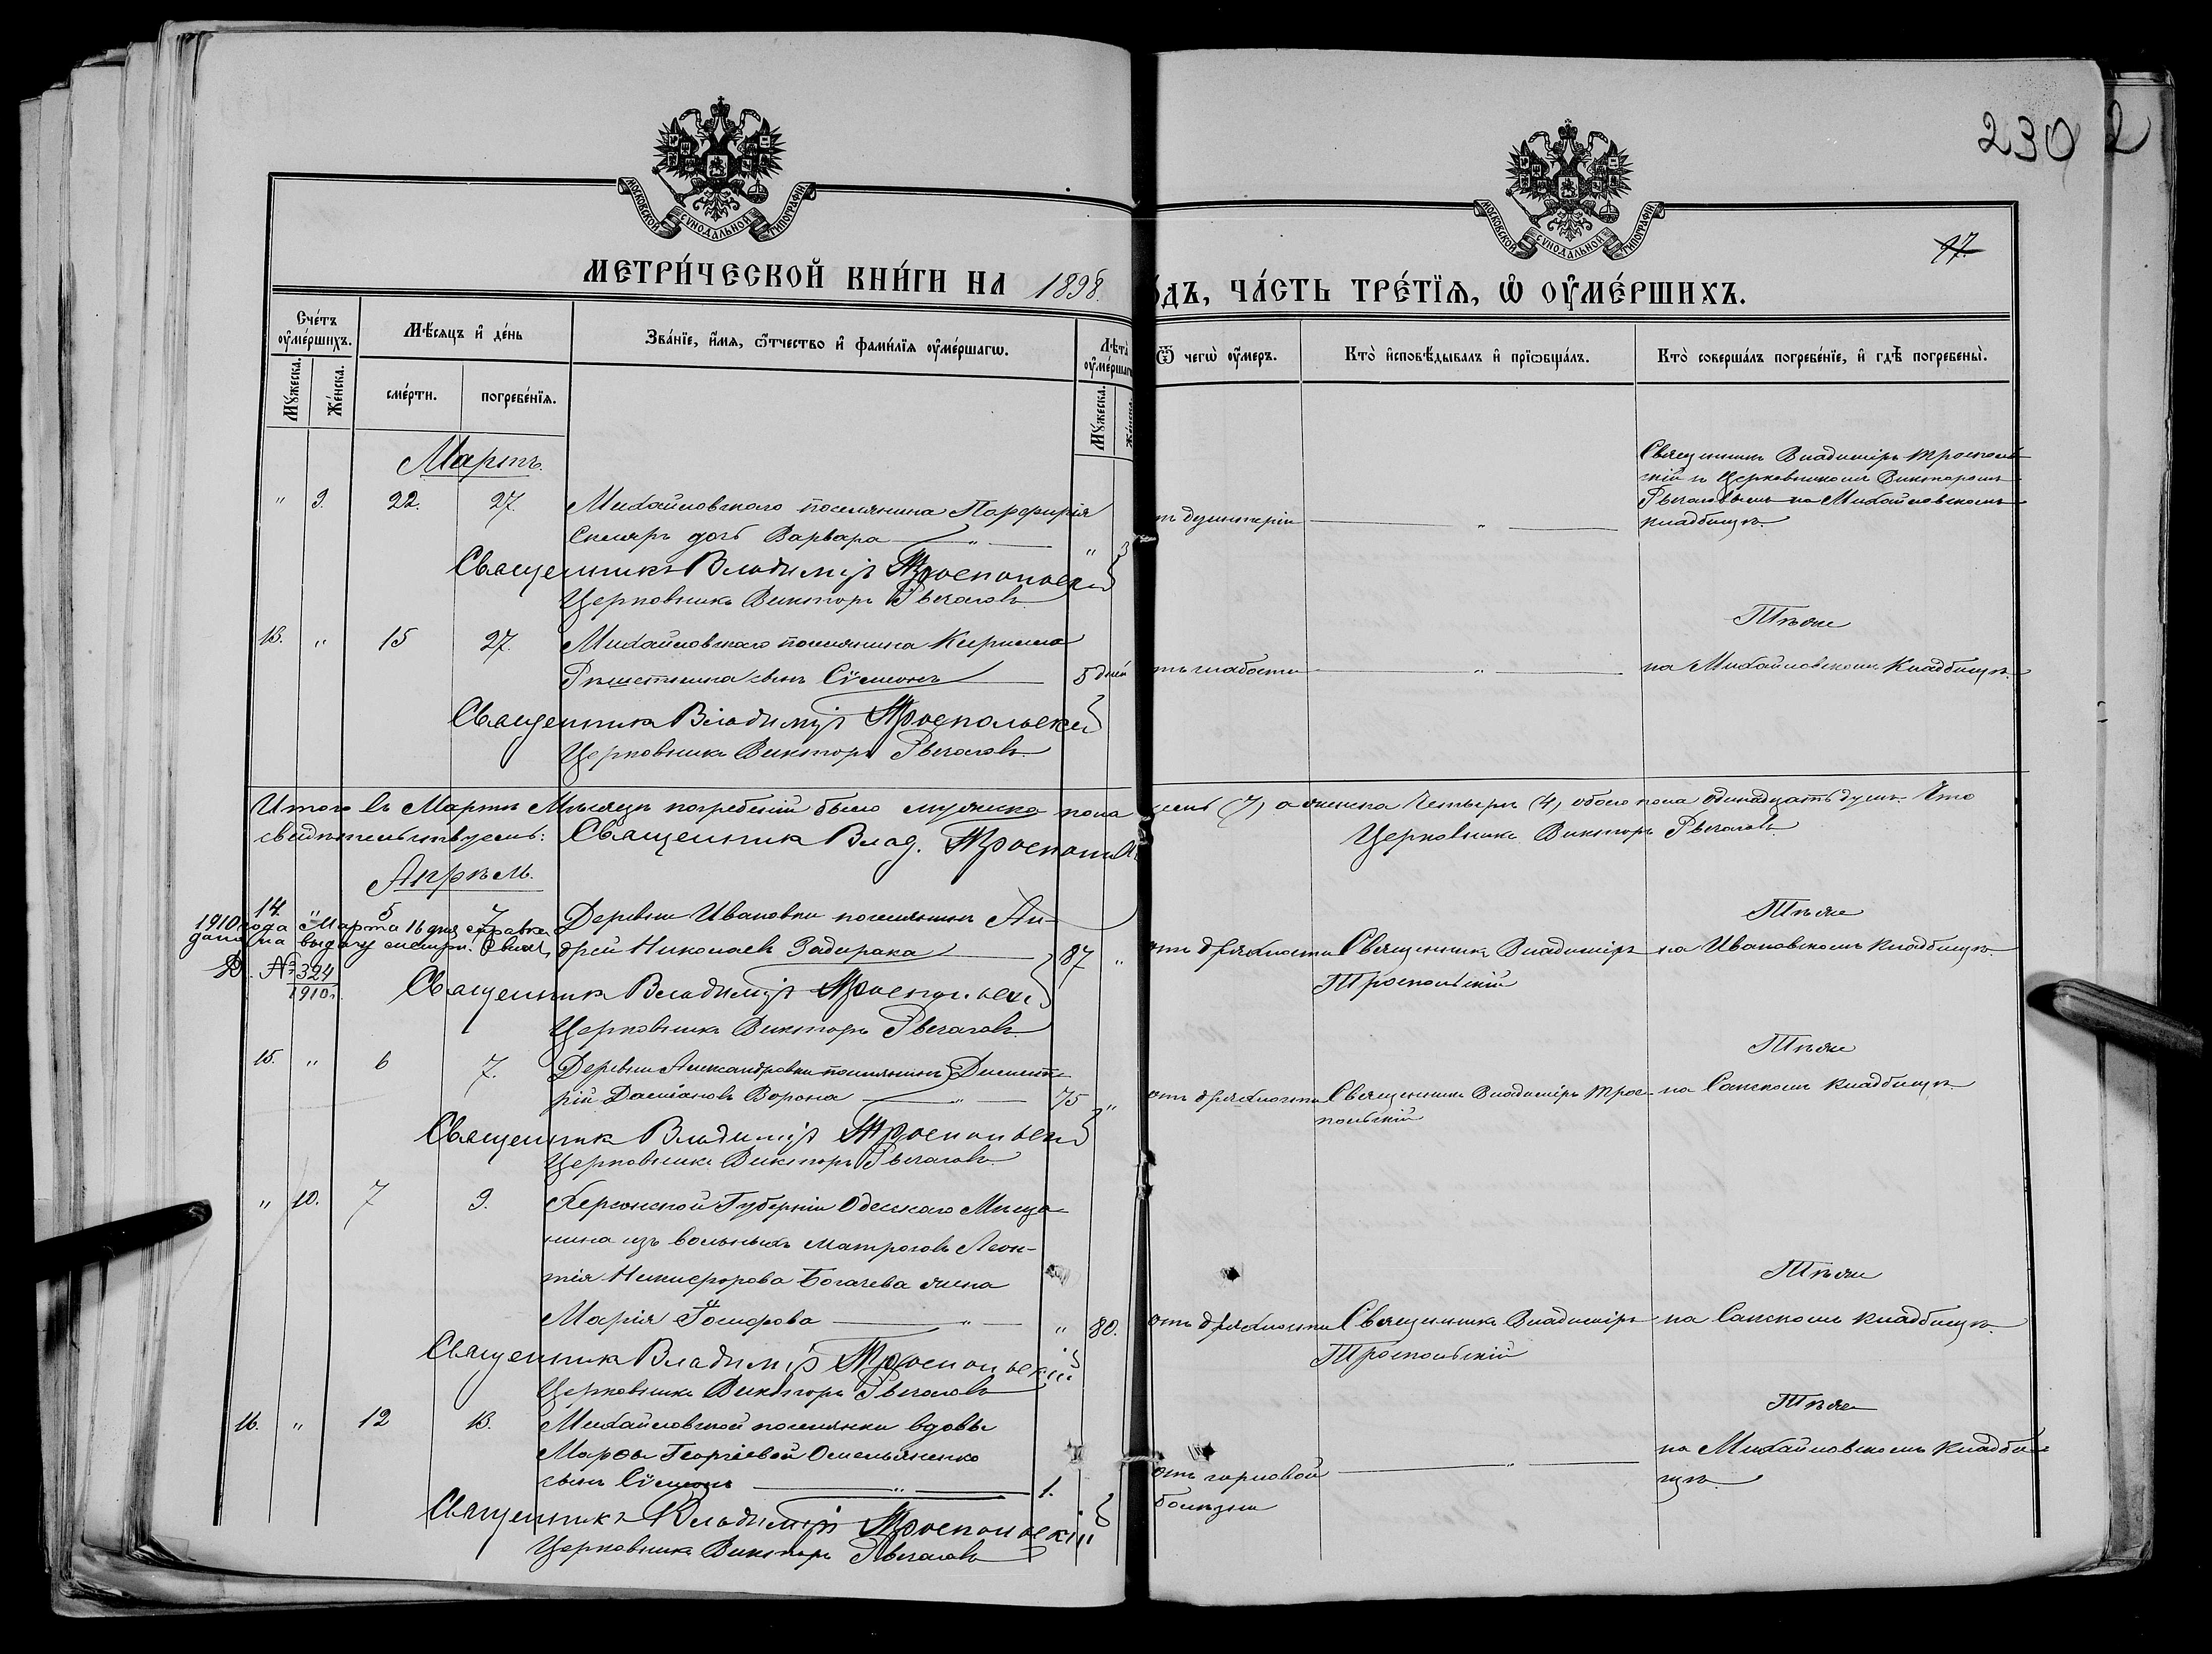 230
2
МОСКОВСКОЙ СѴНОДАЛЬНОЙ ТИПОГРАФІИ
МОСКОВСКОЙ СѴНОДАЛЬНОЙ ТИПОГРАФІИ
МЕТРИ́ЧЕСКОЙ КНИ́ГИ НА 1898. го́дъ, ЧА́СТЬ ТРЕ́ТЇѦ, Ѡ҆ ОУ҆МЕ́РШИХЪ.
Сче́тъ оу҆ме́ршихъ.
Мѣ́сѧцъ и҆ де́нь
Зва́нїе, и҆́мѧ, ѻ҆́тчество и҆ фами́лїѧ оу҆ме́ршагѡ.
Лѣта̀ оу҆ме́ршагѡ
Ѿ чегѡ̀ оу҆́меръ.
Кто̀ и҆сповѣ́дывалъ и҆ прїѡбща́лъ.
Кто̀ соверша́лъ погребе́нїе, и҆ гдѣ̀ погребены̀.
Мꙋ́жеска.
Же́нска.
сме́рти.
погребе́нїѧ.
Мꙋ́жеска.
Же́нска.
Мартъ.
" 9. 22. 27. Михайловскаго поселянина Порфирія
Скляръ дочь Варвара " 3
отъ дузинтеріи "
Священникъ Владиміръ Троепольскій съ Церковникомъ Викторомъ Рвачовымъ на Михайловскомъ кладбищѣ.
Священникъ Владиміръ Троепольскій
Церковникъ Викторъ Рвачовъ
13. " 15 27. Михайловскаго поселянина Кирилла
Рѣшетника сынъ Сѵмеонъ 5 дней отъ слабости "
Тѣже
на Михайловскомъ Кладбищѣ.
Священникъ Владиміръ Троепольскій
Церковникъ Викторъ Рвачовъ
Итого въ Мартѣ Мѣсяцѣ погребеній было мужска пола семь (7) а женска Четыре (4), обоего пола одинадцать душъ. Что
свидѣтельствуемъ: Священникъ Влад. Троепольскій
Церковникъ Викторъ Рвачовъ
Апрѣль.
14. " 5 7 Деревни Ивановки поселянинъ Ан-
дрей Николаевъ Задирака 87 "
1910 года Марта 16 дня справка
дана на выдачу метрич. свид.
Д. № 324
1910 г.
отъ дряхлости Священникъ Владиміръ Троепольскій
Тѣже
на Ивановскомъ кладбищѣ.
Священникъ Владиміръ Троепольскій
Церковникъ Викторъ Рвачовъ
15. " 6 7. Деревни Александровки поселянинъ Димит-
рій Даміановъ Ворона " 75 "
отъ дряхлости Священникъ Владиміръ Трое-
польскій
Тѣже
на Сакскомъ кладбищѣ
Священникъ Владиміръ Троепольскій
Церковникъ Викторъ Рвачовъ
" 10. 7 9. Херсонской Губерніи Одесскаго Мѣща-
нина изъ вольныхъ матросовъ Леон-
тія Никифорова Богачева жена
Марія Ѳеодорова " " 80.
отъ дряхлости Священникъ Владиміръ
Троепольскій
Тѣже
на Сакскомъ кладбищѣ
Священникъ Владиміръ Троепольскій
Церковникъ Викторъ Рвачовъ
16. " 12 13. Михайловской поселянки вдовы
Марѳы Георгіевой Омельяненко
сынъ Сѵмеонъ " 1.
отъ горловой
болѣзни "
Тѣже
на Михайловскомъ кладби-
щѣ.
Священникъ Владиміръ Троепольскій
Церковникъ Викторъ Рвачовъ